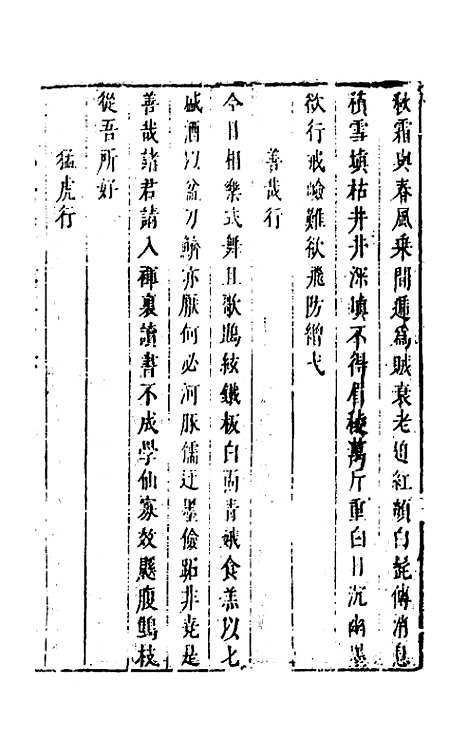 秋霜與春風乗間遞爲賊衰老迫紅顏白髭傳消息
積雪塡枯井井深塡不得眉稜萬斤重白日沉幽墨
欲行戒嶮難欲飛防繒弋
善哉行
今日相樂式舞且歌鵾絃鐵板白面青娥食羔以七
盛酒以盆刀鱭亦厭何必河豚儒迂墨儉跖非堯是
善哉諸君請入褌裏讀書不成學仙寡效縣腹鷦枝
從吾所好
猛虎行